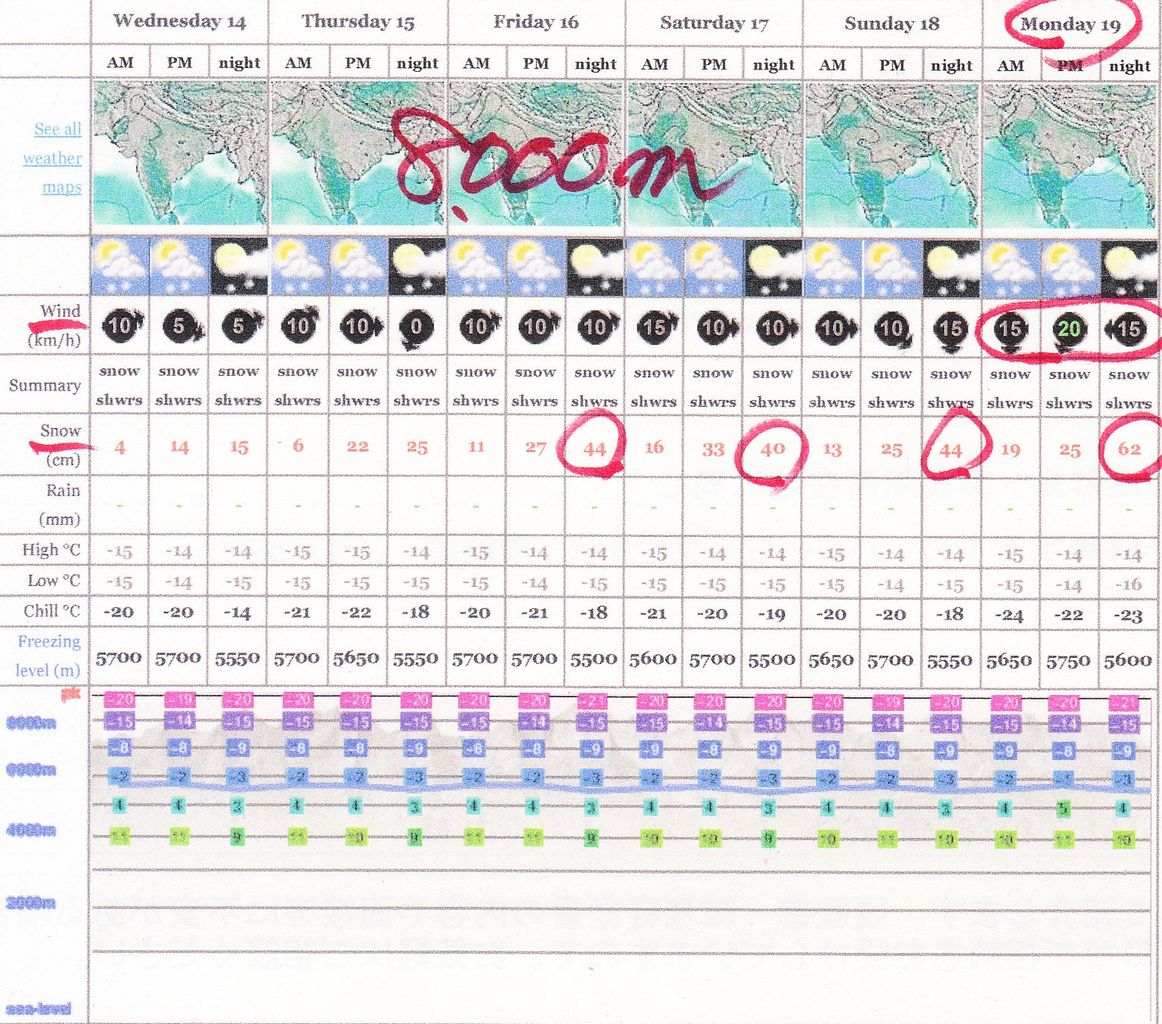 Wednesday 14 Thursday 15 Friday 16 Saturday 17 Sunday 18 Monday 19
AM PM night AM PM night AM PM night AM PM night AM PM night AM PM night
See all
weather
maps
8000m
Wind
(km/h)
10 5 5 10 10 0 10 10 10 15 10 10 10 10 15 15 20 15
Summary
snow snow snow snow snow snow snow snow snow snow snow snow snow snow snow snow snow snow
shwrs shwrs shwrs shwrs shwrs shwrs shwrs shwrs shwrs shwrs shwrs shwrs shwrs shwrs shwrs shwrs shwrs shwrs
Snow
(cm)
4 14 15 6 22 25 11 27 44 16 33 40 13 25 44 19 25 62
Rain
(mm)
- - - - - - - - - - - - - - - - - -
High °C -15 -14 -14 -15 -15 -14 -15 -14 -14 -15 -14 -14 -15 -14 -14 -15 -14 -14
Low °C -15 -14 -15 -15 -15 -15 -15 -14 -15 -15 -15 -15 -15 -14 -15 -15 -14 -16
Chill °C -20 -20 -14 -21 -22 -18 -20 -21 -18 -21 -20 -19 -20 -20 -18 -24 -22 -23
Freezing
level (m)
5700 5700 5550 5700 5650 5550 5700 5700 5500 5600 5700 5500 5650 5700 5550 5650 5750 5600
pk -20 -19 -20 -20 -20 -20 -20 -20 -20 -20 -20 -20 -20 -19 -20 -20 -20 -21
8000m -15 -14 -15 -15 -15 -15 -15 -14 -15 -15 -14 -15 -15 -14 -15 -15 -14 -15
-8 -8 -9 -8 -8 -9 -8 -8 -9 -9 -8 -9 -9 -8 -9 -9 -8 -9
6000m -2 -2 -3 -2 -2 -3 -2 -2 -3 -2 -2 -3 -2 -2 -3 -2 -1 -3
4 4 3 4 4 3 4 4 3 4 4 3 4 4 3 4 5 4
4000m 11 11 9 11 10 9 11 11 9 10 10 9 10 10 10 10 11 10
2000m
sea-level